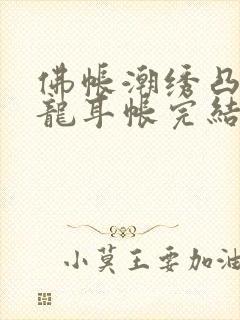 佛帐潮绣凸
龍耳帐完結
小莫王要加油